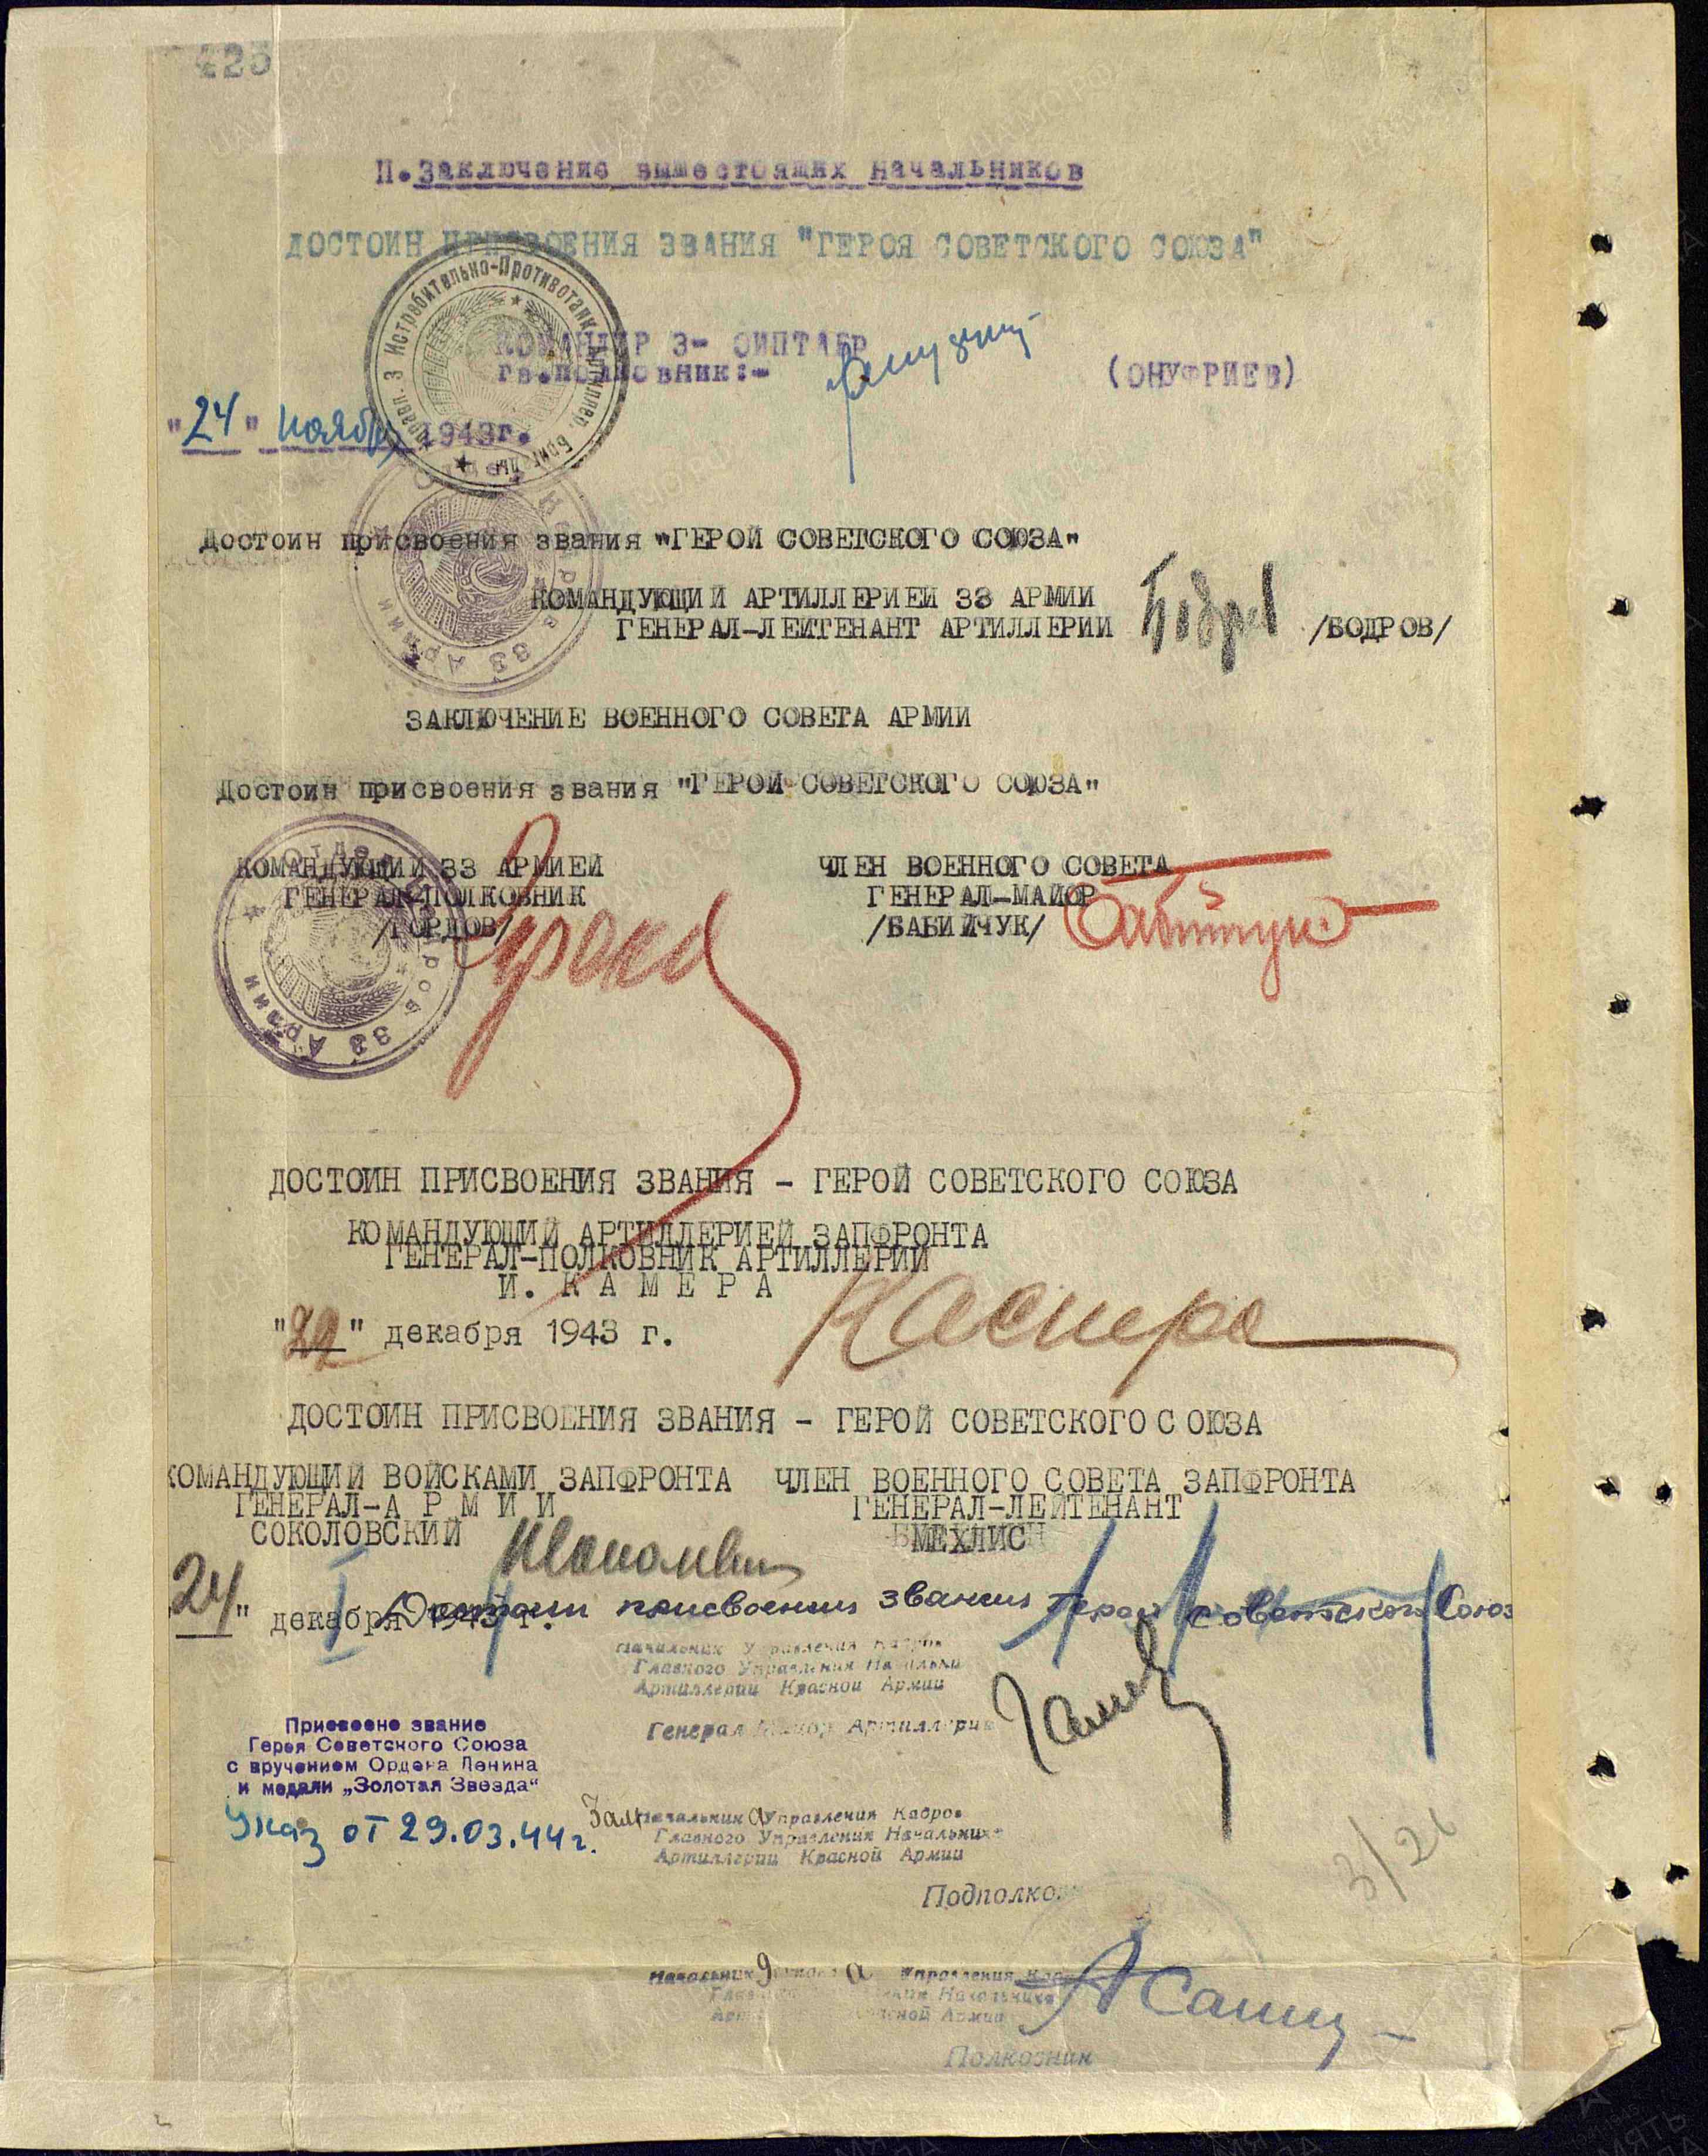 423
II. Заключение вышестоящих начальников
ДОСТОИН ПРИСВОЕНИЯ ЗВАНИЯ "ГЕРОЯ СОВЕТСКОГО СОЮЗА"
КОМАНДИР 3- ОИПТАБР
гв.полковник:-
(ОНУФРИЕВ)
"24" ноября 1943г.
Достоин присвоения звания "ГЕРОЙ СОВЕТСКОГО СОЮЗА"
КОМАНДУЮЩИЙ АРТИЛЛЕРИЕЙ 33 АРМИИ
ГЕНЕРАЛ-ЛЕЙТЕНАНТ АРТИЛЛЕРИИ /БОДРОВ/
ЗАКЛЮЧЕНИЕ ВОЕННОГО СОВЕТА АРМИИ
Достоин присвоения звания "ГЕРОЙ СОВЕТСКОГО СОЮЗА"
КОМАНДУЮЩИЙ 33 АРМИЕЙ ЧЛЕН ВОЕННОГО СОВЕТА
ГЕНЕРАЛ-ПОЛКОВНИК ГЕНЕРАЛ-МАЙОР
/ГОРДОВ/ /БАБИЙЧУК/
Отдел Кадров 33 Армии
ДОСТОИН ПРИСВОЕНИЯ ЗВАНИЯ - ГЕРОЙ СОВЕТСКОГО СОЮЗА
КОМАНДУЮЩИЙ АРТИЛЛЕРИЕЙ ЗАПФРОНТА
ГЕНЕРАЛ-ПОЛКОВНИК АРТИЛЛЕРИИ
И. КАМЕРА
"22" декабря 1943 г. Камера
ДОСТОИН ПРИСВОЕНИЯ ЗВАНИЯ - ГЕРОЙ СОВЕТСКОГО СОЮЗА
КОМАНДУЮЩИЙ ВОЙСКАМИ ЗАПФРОНТА ЧЛЕН ВОЕННОГО СОВЕТА ЗАПФРОНТА
ГЕНЕРАЛ-АРМИИ ГЕНЕРАЛ-ЛЕЙТЕНАНТ
СОКОЛОВСКИЙ МЕХЛИС
"24" декабря 1943 г.
Достоин присвоения звания Героя Советского Союз
Начальник Управления Кадров
Главного Управления Начальн
Артиллерии Красной Армии
Генерал Майор Артиллерии
Присвоено звание
Героя Советского Союза
с вручением Ордена Ленина
и медали „Золотая Звезда"
Указ от 29.03.44г.
Зам Начальника Управления Кадров
Главного Управления Начальника
Артиллерии Красной Армии
Подполко
3/26
Начальник Управления
Начальника
Красной Армии
Полковник